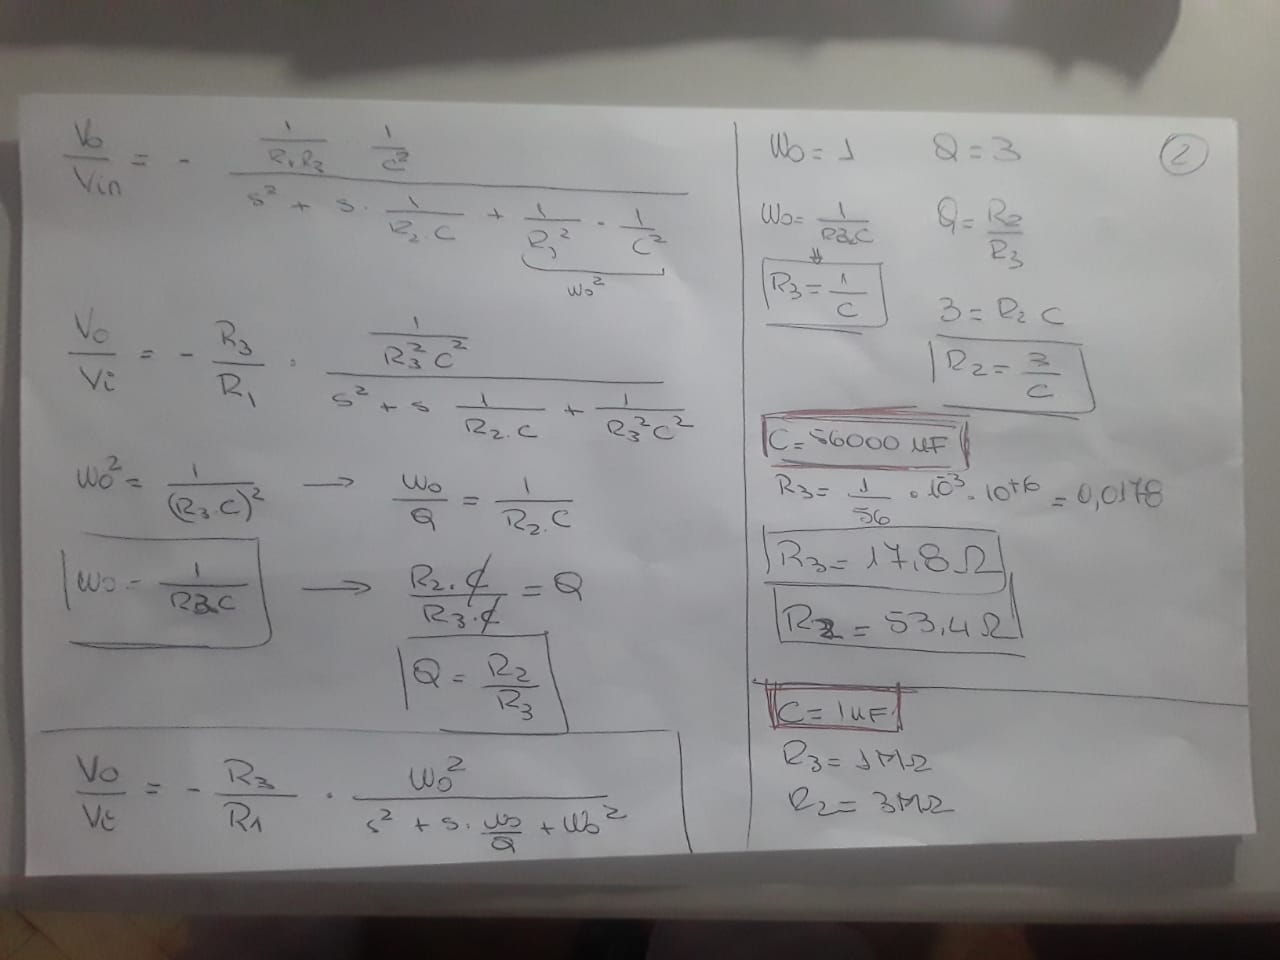 Vo/Vin = - (1/(R1R3) · 1/C²) / (s² + s · 1/(R2.C) + 1/R3² · 1/C²)
Wo²
Vo/Vi = - R3/R1 · (1/(R3²C²)) / (s² + s 1/(R2.C) + 1/(R3²C²))
Wo² = 1/(R3.C)² → Wo/Q = 1/(R2.C)
Wo = 1/(R3.C) → R2.C/R3.C = Q
Q = R2/R3
Vo/Vi = - R3/R1 · Wo²/(s² + s. Wo/Q + Wo²)
2
Wo = 1 Q = 3
Wo = 1/(R3.C) Q = R2/R3
⇓
R3 = 1/C 3 = R2 C
R2 = 3/C
C = 56000 uF
R3 = 1/56 · 10⁻³ · 10⁺⁶ = 0,0178
R3 = 17,8 Ω
R2 = 53,4 Ω
C = 1uF
R3 = 1MΩ
R2 = 3MΩ